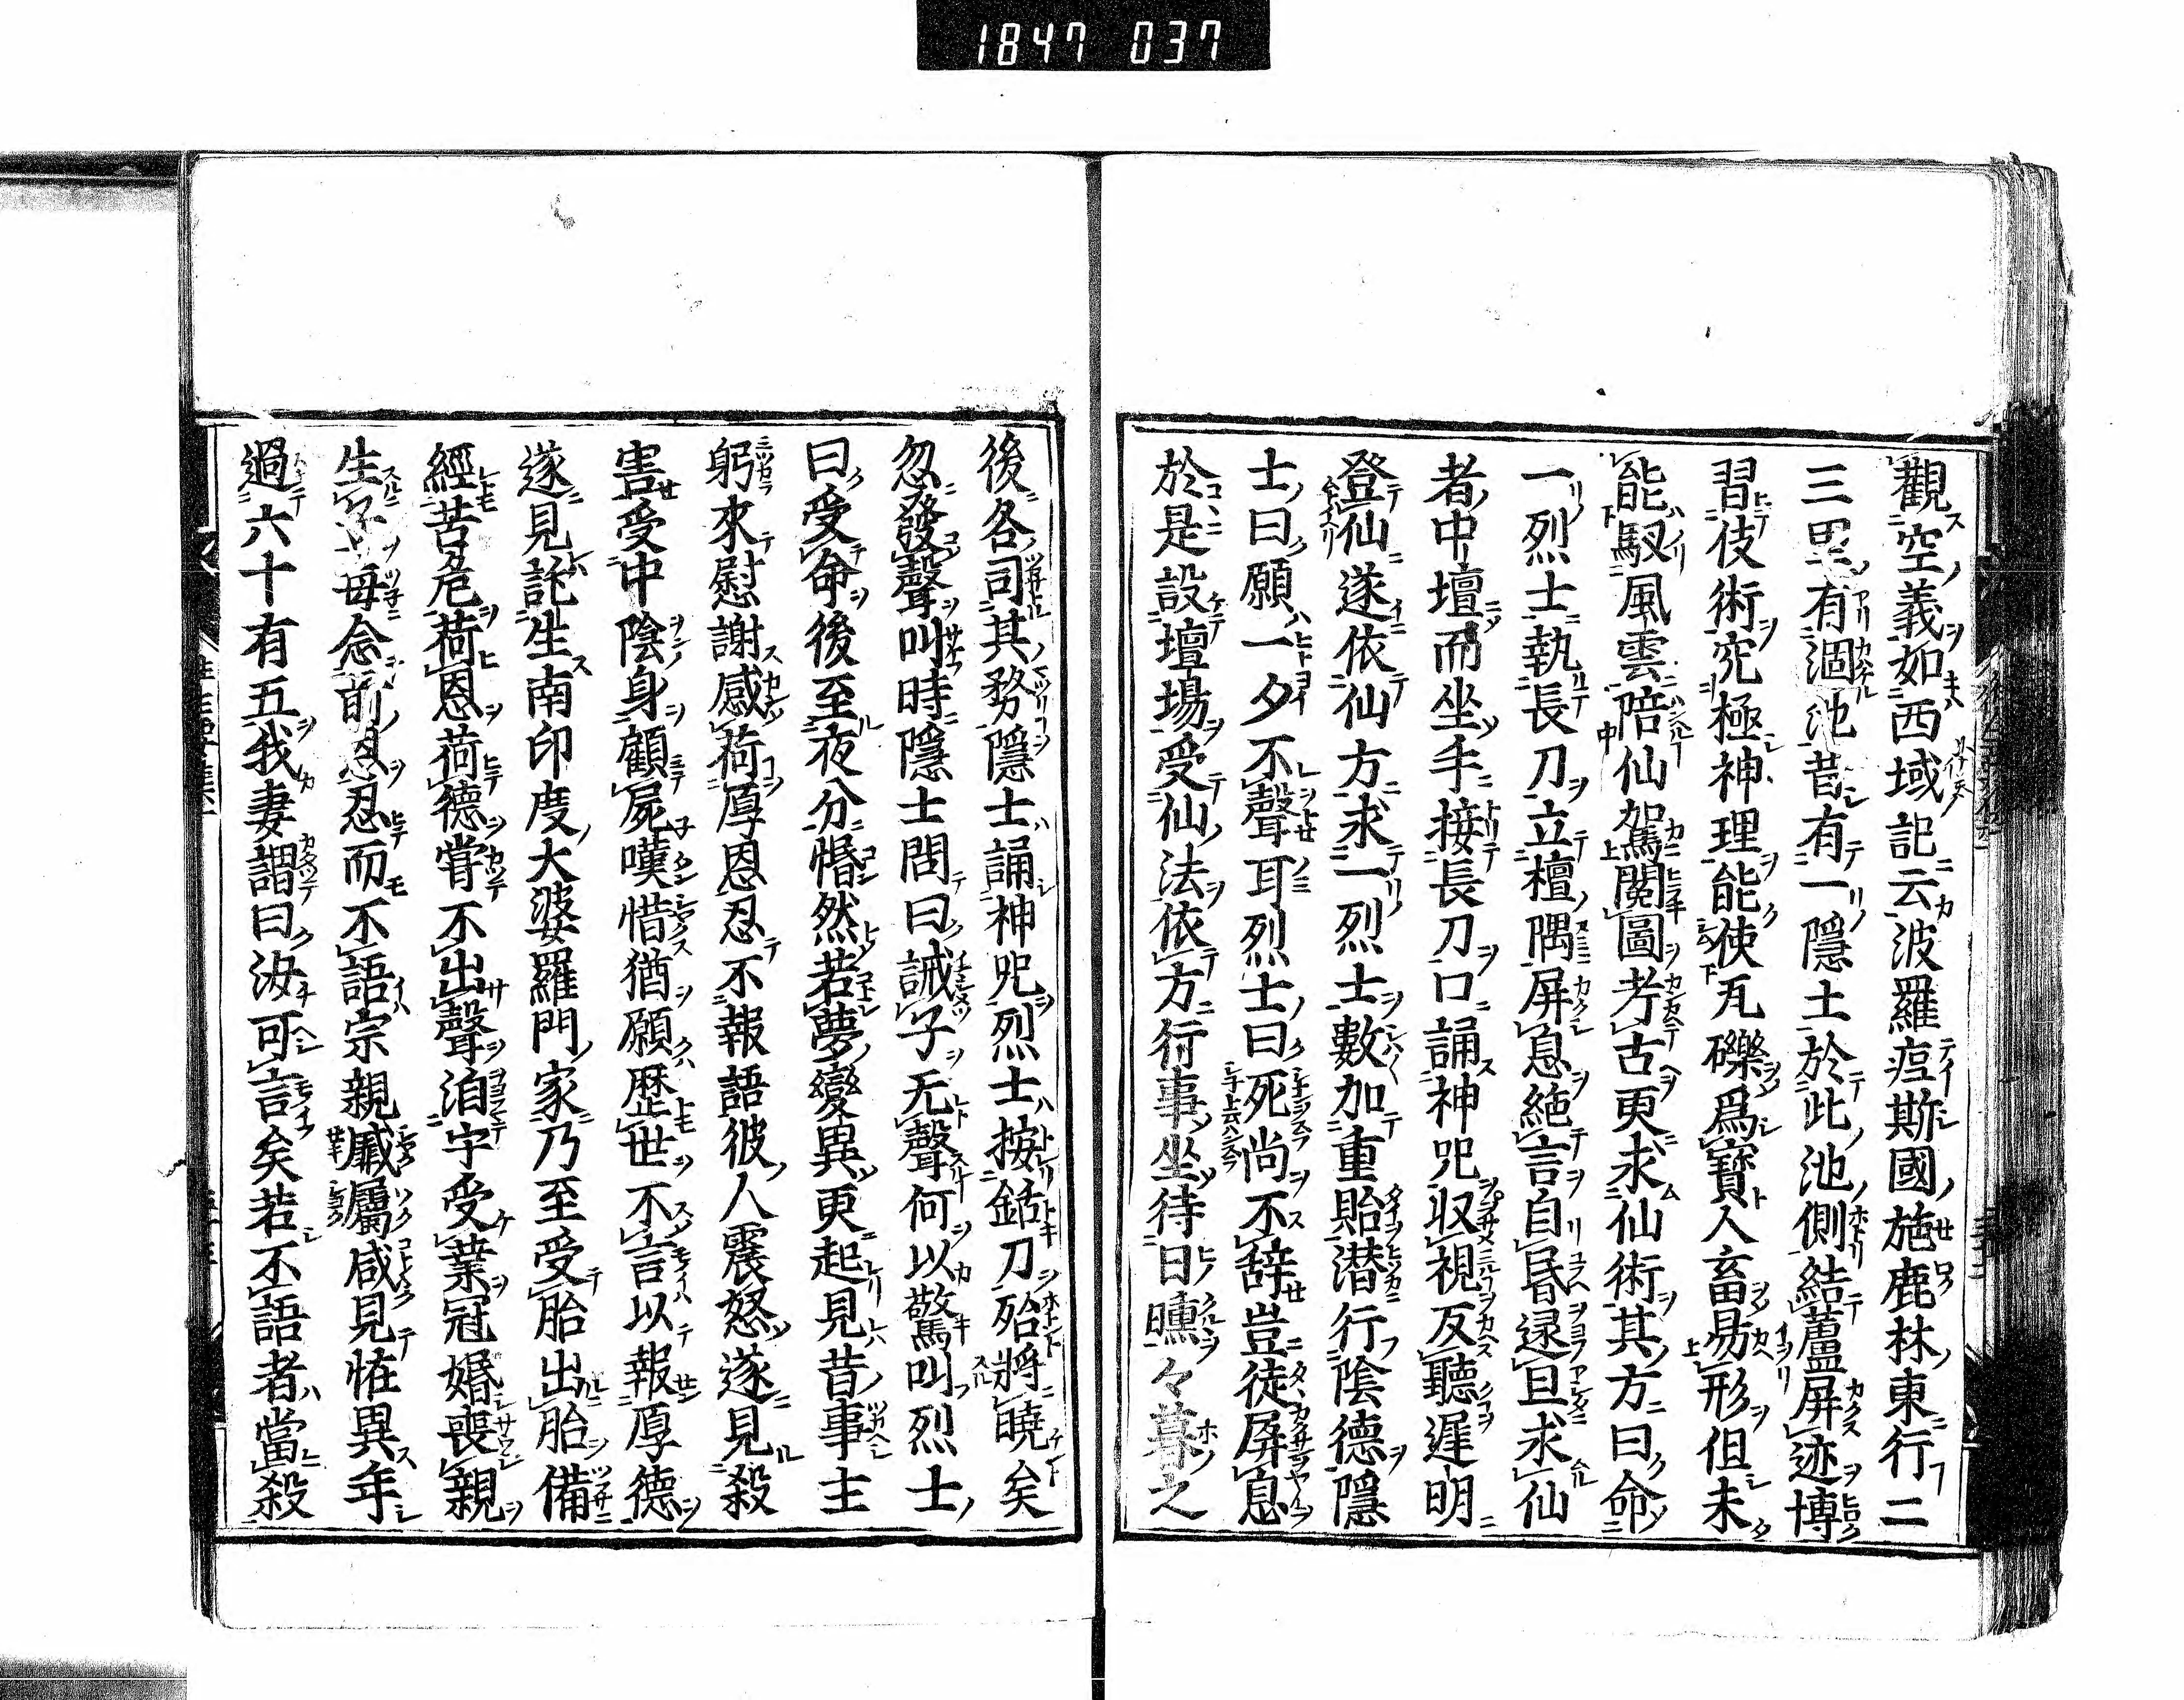 1847 037
觀空義如西域記云波羅痆斯國施鹿林東行二
三里有涸池昔有一隱士於此池側結蘆屏迹博
習伎術究極神理能使瓦礫爲寳人畜易形但未
能馭風雲陪仙駕閲圖考古更求仙術其方曰命
一烈士執長刀立檀隅屏息絶言自昏逯旦求仙
者中壇而坐手接長刀口誦神呪収視反聽遲明
登仙遂依仙方求一烈士數加重貽潜行陰德隱
士曰願一夕不聲耳烈士曰死尚不辞豈徒屏息
於是設壇場受仙法依方行事坐待日曛々暮之
後各司其務隱士誦神呪烈士按銛刀殆將曉矣
忽發聲叫時隱士問曰誡子无聲何以驚叫烈士
曰受命後至夜分惛然若夢變異更起見昔事主
躬來慰謝感荷厚恩忍不報語彼人震怒遂見殺
害受中陰身顧屍嘆惜猶願歴世不言以報厚德
遂見託生南印度大婆羅門家乃至受胎出胎備
經苦危荷恩荷德甞不出聲洎乎受業冠婚喪親
生子毎念前恩忍而不語宗親戚屬咸見恠異年
過六十有五我妻謂曰汝可言矣若不語者當殺